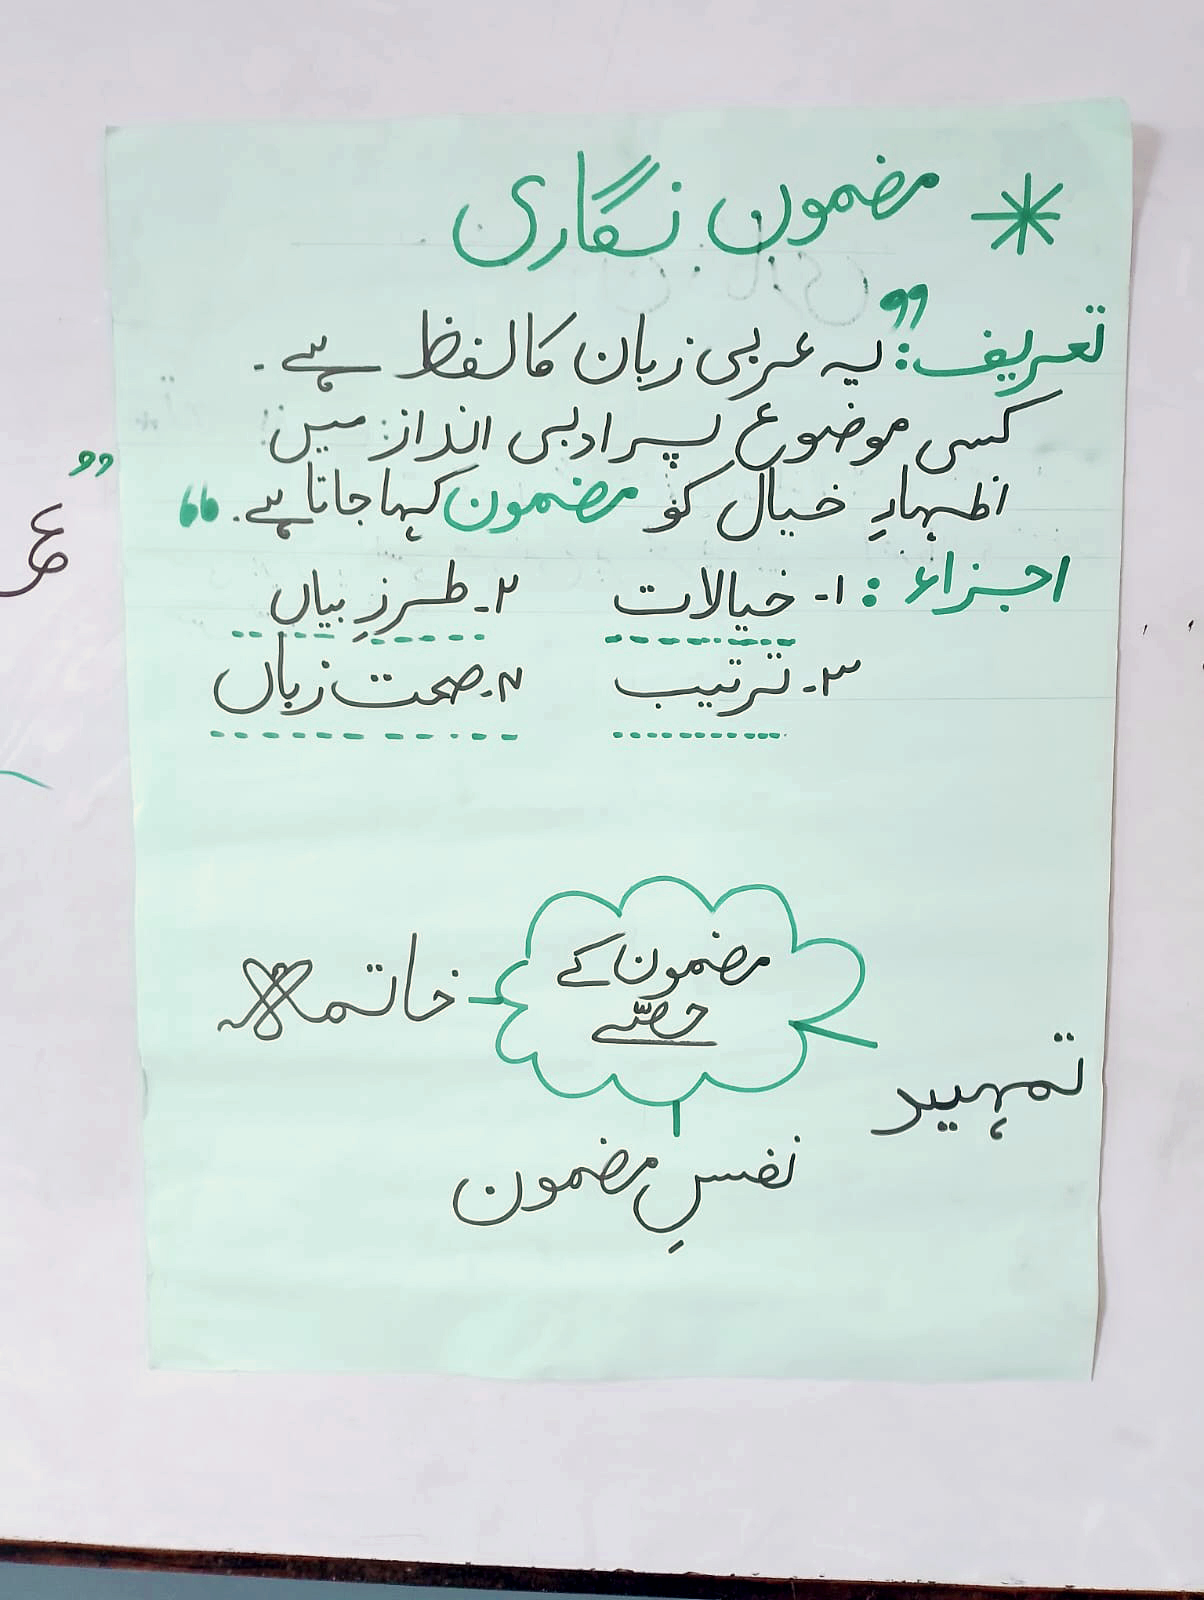 * مضمون نگاری
تعریف: ”یہ عربی زبان کا لفظ ہے۔
کسی موضوع پر ادبی انداز میں
اظہارِ خیال کو مضمون کہا جاتا ہے۔“
اجزاء: ۱- خیالات ۲- طرزِ بیاں
۳- ترتیب ۴- صحت زباں
مضمون کے
حصّے
خاتمہ
تمہید
نفسِ مضمون